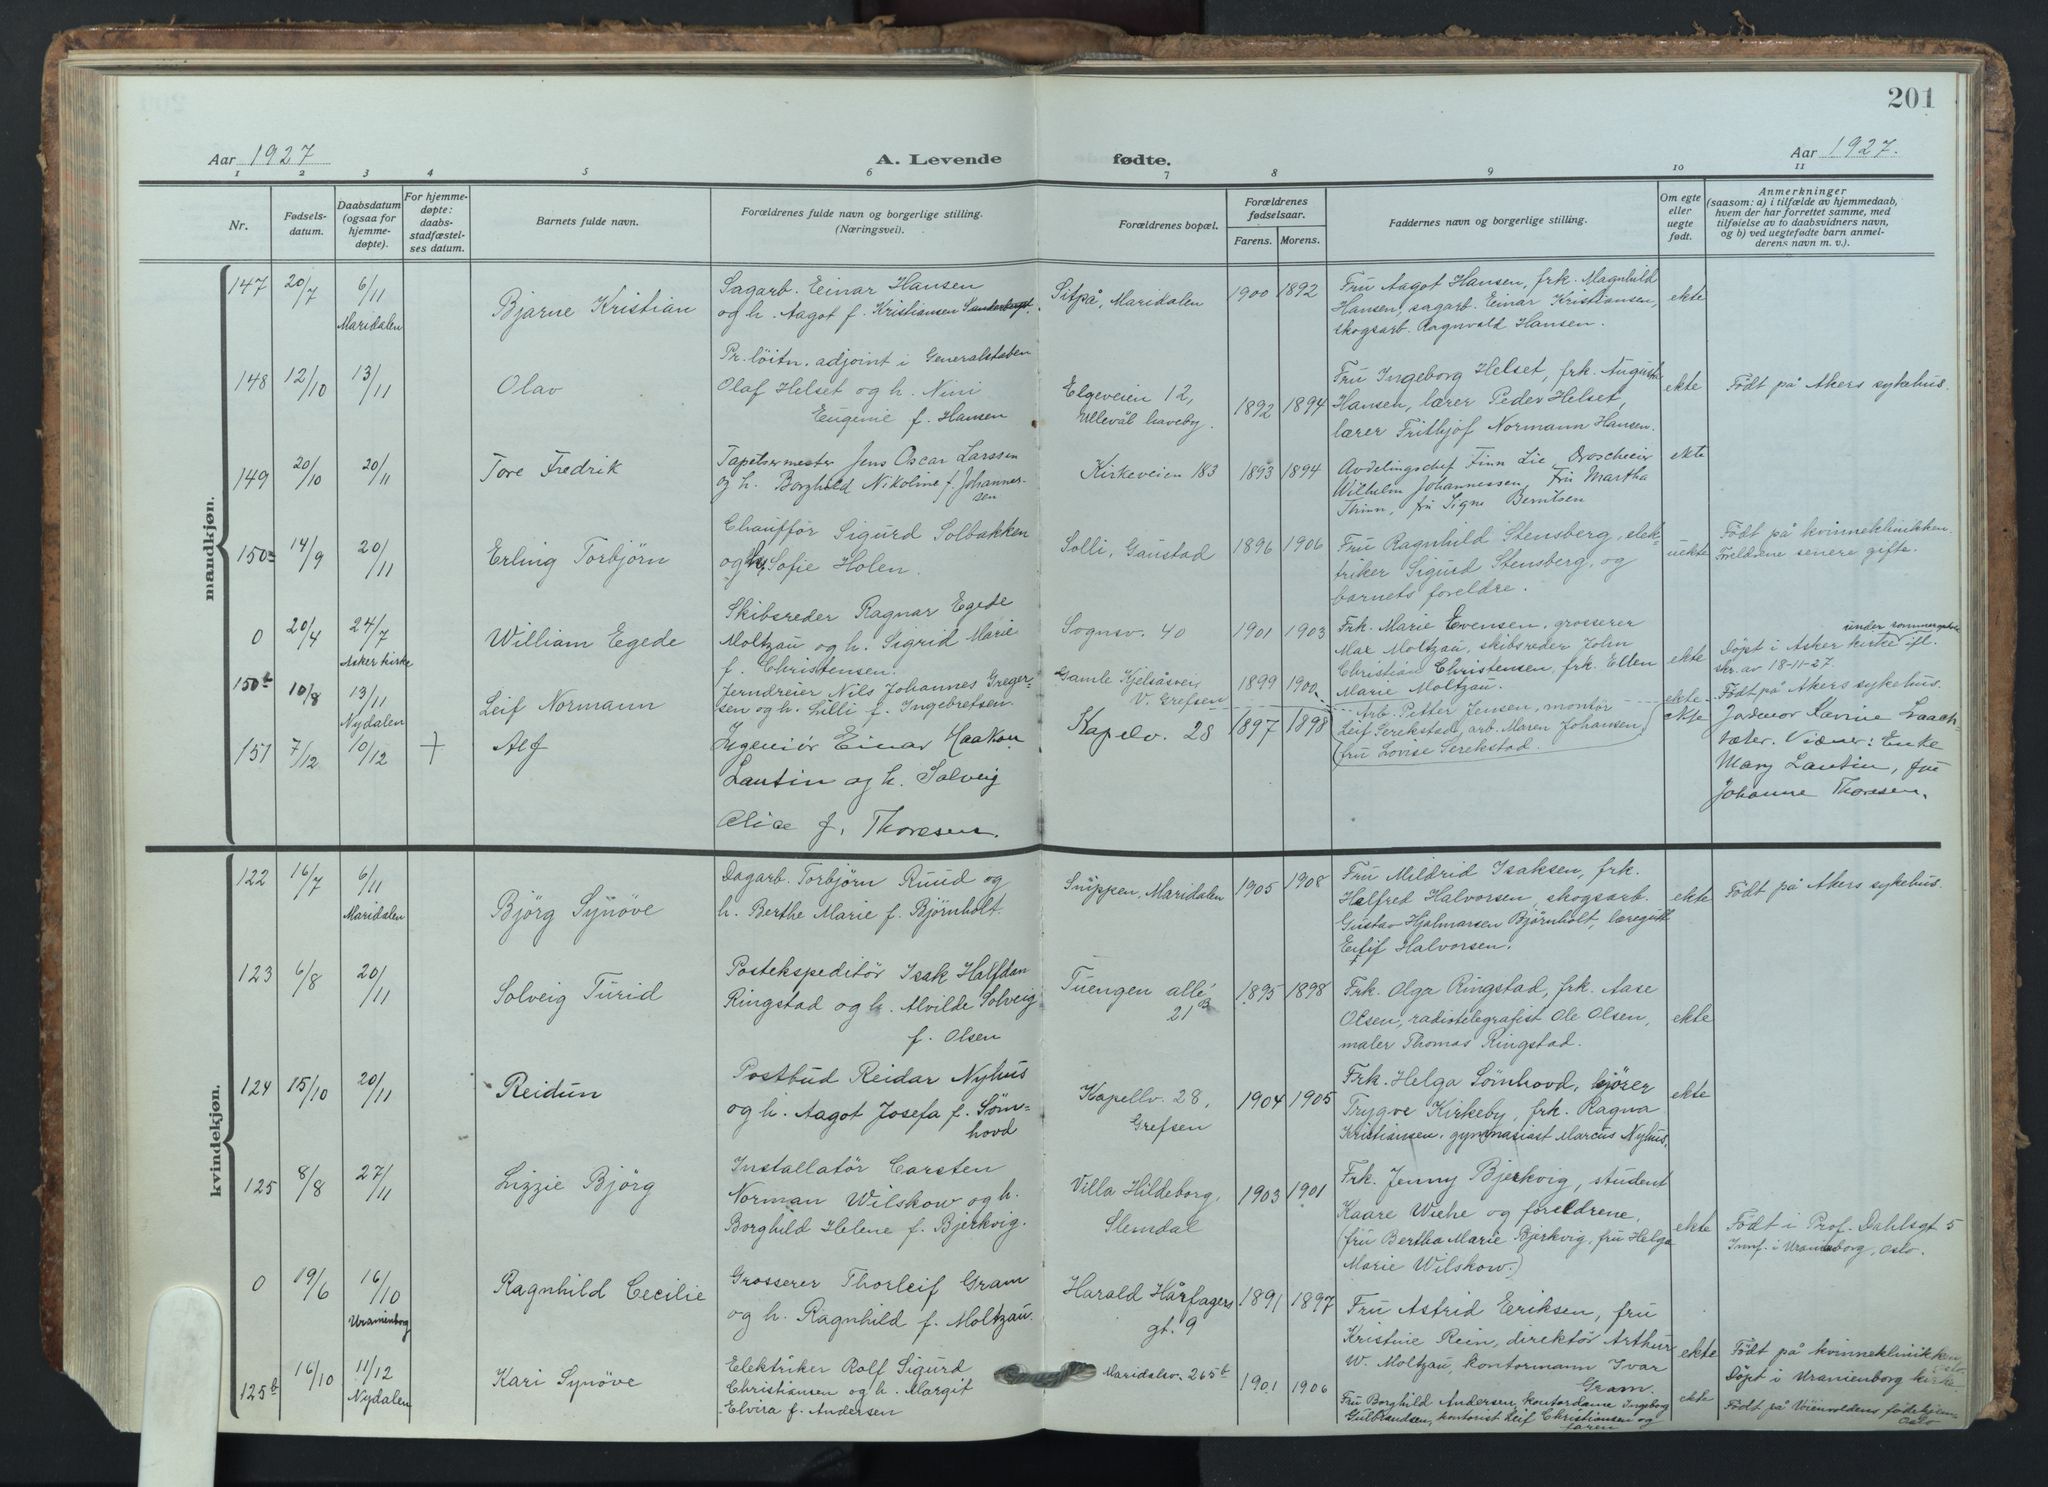 201
Aar 1927
A. Levende
fødte.
Aar 1927.
1 2 3 4 5 6 7 8 9 10 11
Nr.
Fødsels-
datum.
Daabsdatum
(ogsaa for
hjemme-
døpte).
For hjemme-
døpte:
daabs-
stadfæstel-
ses datum.
Barnets fulde navn.
Forældrenes fulde navn og borgerlige stilling.
(Næringsvei).
Forældrenes bopæl.
Forældrenes
fødselsaar.
Farens. Morens.
Faddernes navn og borgerlige stilling.
Om egte
eller
uegte
født.
Anmerkninger
(saasom: a) i tilfælde av hjemmedaab,
hvem der har forrettet samme, med
tilføielse av to daabsvidners navn,
og b) ved uegtefødte barn anmel-
derens navn m. v.).
mandkjøn.
147 20/7 6/11
Maridalen
Bjarne Kristian
Sagarb. Einar Hansen
og h. Aagot f. Kristiansen
Maridalen
1900 1892
Fru Aagot Hansen, frk. Magnhild
Hansen, sagarb. Einar Kristiansen,
skogsarb. Ragnvald Hansen.
ekte
148 12/10 13/11
Olav
Pr. løitn. adjoint i Generalstaben
Olaf Helset og h. Nini
Eugenie f. Hansen
Elgeveien 12,
Ullevål haveby.
1892 1894
Fru Ingeborg Helset, frk. Augusta
Hansen, lærer Peder Helset,
lærer Frithjof Normann Hansen.
ekte
Født på Akers sykehus.
149 20/10 20/11
Tore Fredrik
Tapetsermester Jens Oscar Larssen
og h. Borghild Nikoline f. Johannes-
sen
Kirkeveien 183
1893 1894
Avdelingschef Finn Lie, Droscheeier
Wilhelm Johannessen, Fru Martha
Thinn, fru Signe Berntsen
ekte
150a 14/9 20/11
Erling Torbjørn
Chauffør Sigurd Solbakken
og Sofie Holen.
Solli, Gaustad
1896 1906
Fru Ragnhild Stensberg, elek-
triker Sigurd Stensberg, og
barnets foreldre.
uekte
Født på kvinneklinikken.
Foreldrene senere gifte.
0 20/4 24/7
Asker kirke
William Egede
Skibsreder Ragnar Egede
Moltzau og h. Sigrid Marie
f. Christensen.
Sognsv. 40
1901 1903
Frk. Marie Evensen, grosserer
Max Moltzau, skibsreder John
Christian Christensen, frk. Ellen
Marie Moltzau.
ekte
under
Døpt i Asker kirke ifl.
skr. av 18-11-27.
150b 10/8 13/11
Nydalen
Leif Normann
Jerndreier Nils Johannes Greger-
sen og h. Lilli f. Ingebretsen.
Gamle Kjelsåsvei
V. Grefsen
1899 1900
Arb. Petter Jensen, montør
Leif Serekstad, arb. Maren Johansen,
fru Lovise Serekstad.
ekte
Født på Akers sykehus.
151 7/12 10/12 +
Alf
Ingeniør Einar Haakon
Lautin og h. Solveig
Alice f. Thoresen.
Kapelv. 28
1897 1898
ekte
Jordmor
Vidner:
Mary Lautin, fru
Johanne Thoresen.
kvindekjøn.
122 16/7 6/11
Maridalen
Bjørg Synøve
Dagarb. Torbjørn Ruud og
h. Berthe Marie f. Bjørnholt.
Snippen, Maridalen
1905 1908
Fru Mildrid Isaksen, frk.
Halfred Halvorsen, skogsarb.
Gustav Hjalmarsen Bjørnholt, læregutt
Halvorsen.
ekte
Født på Akers sykehus.
123 6/8 20/11
Solveig Turid
Postekspeditør Isak Halfdan
Ringstad og h. Alvilde Solveig
f. Olsen
Tuengen allé
21 B
1895 1898
Frk. Olga Ringstad, frk. Aase
Olsen, radiotelegrafist Ole Olsen,
maler Thomas Ringstad.
ekte
124 15/10 20/11
Reidun
Postbud Reidar Nyhus
og h. Aagot Josefa f. Søm-
hovd
Kapellv. 28,
Grefsen
1904 1905
Frk. Helga Sømhovd, kjører
Trygve Kirkeby, frk. Ragna
Kristiansen, gymnasiast Marcus Nyhus.
ekte
125 8/8 27/11
Lizzie Bjørg
Installatør Carsten
Norman Wilskow og h.
Borghild Helene f. Bjerkvig.
Villa Hildeborg,
Slemdal
1903 1901
Frk. Jenny Bjerkvig, student
Kaare Wiehe og foreldrene.
(fru Bertha Marie Bjerkvig, fru Helga
Marie Wilskow.)
ekte
Født i Prof. Dahlsgt 5
Innf. i Uranienborg, Oslo.
0 19/6 16/10
Uranienborg
Ragnhild Cecilie
Grosserer Thorleif Gram
og h. Ragnhild f. Moltzau.
Harald Hårfagers
gt. 9
1891 1897
Fru Astrid Eriksen, fru
Kristine Rein, direktør Arthur
W. Moltzau, kontormann Ivar
Gram.
ekte
Født på kvinneklinikken, Oslo
Døpt i Uranienborg kirke
125b 16/10 11/12
Nydalen
Kari Synøve
Elektriker Rolf Sigurd
Christiansen og h. Margit
Elvira f. Andersen
Maridalsv. 265b
1901 1906
Fru Borghild Andersen, kontordame Ingeborg
Gulbrandsen, kontorist Leif Christiansen og
faren
ekte
Født på Voienvoldens fødehjem
Oslo